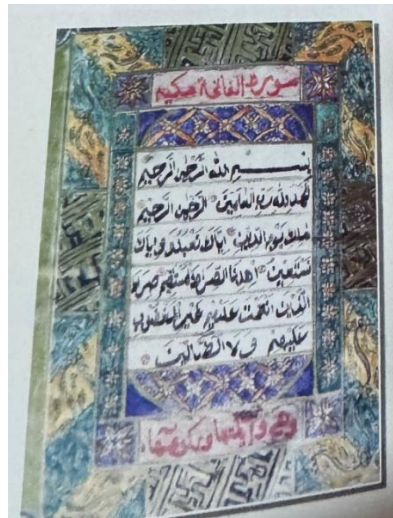 سورة الفاتحة مكية
بسم الله الرحمن الرحيم
الحمد لله رب العالمين الرحمن الرحيم
ملك يوم الدين اياك نعبد و اياك
نستعين اهدنا الصراط المستقيم صراط
الذين انعمت عليهم غير المغضوب
عليهم ولا الضالين